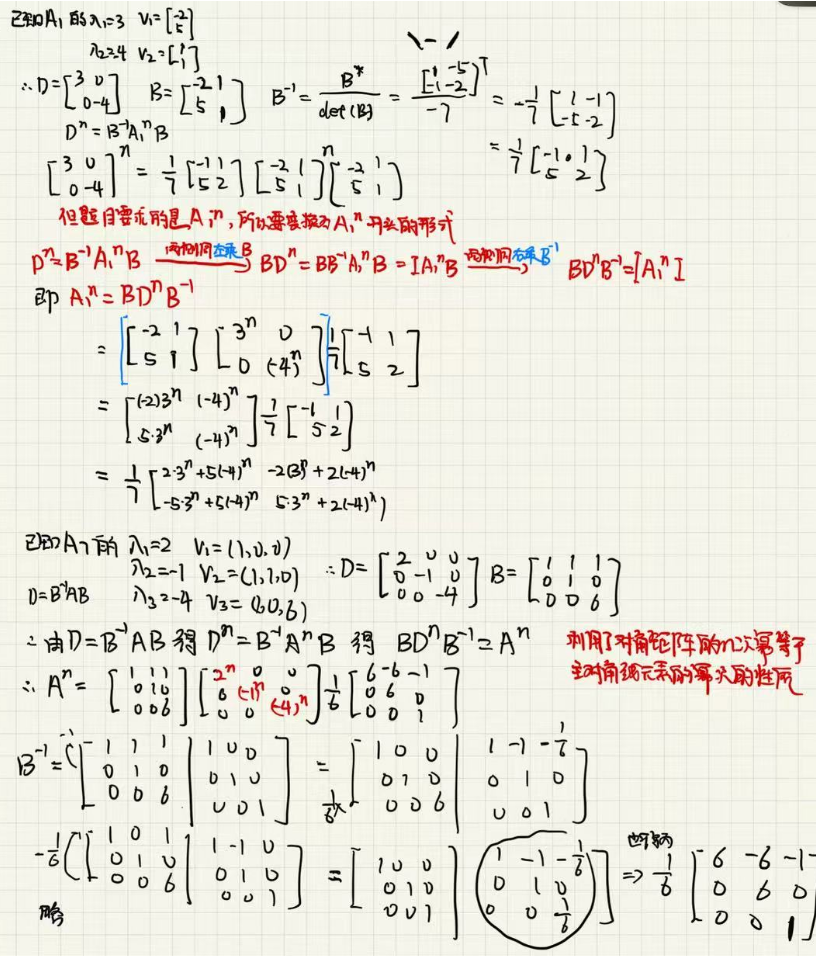 已知A₁的λ₁=3 V₁=[-2; 5]
λ₂=-4 V₂=[1; 1]
∴D=[3 0; 0 -4] B=[-2 1; 5 1] B⁻¹ = B*/det(B) = [1 -5; -1 -2]ᵀ/-7 = -1/7 [1 -1; -5 -2]
Dⁿ=B⁻¹A₁ⁿB
= 1/7 [-1 1; 5 2]
[3 0; 0 -4]ⁿ = 1/7 [-1 1; 5 2] [-2 1; 5 1]ⁿ [-2 1; 5 1]
但题目要求的是A₁ⁿ,所以要变换为A₁ⁿ开头的形式
Dⁿ=B⁻¹A₁ⁿB 两侧同左乘B→ BDⁿ=BB⁻¹A₁ⁿB=IA₁ⁿB 两侧同右乘B⁻¹→ BDⁿB⁻¹=[A₁ⁿI
即 A₁ⁿ=BDⁿB⁻¹
= [[-2 1; 5 1] [3ⁿ 0; 0 (-4)ⁿ]] 1/7 [-1 1; 5 2]
= [(-2)3ⁿ (-4)ⁿ; 5·3ⁿ (-4)ⁿ] 1/7 [-1 1; 5 2]
= 1/7 [2·3ⁿ+5(-4)ⁿ -2(3)ⁿ+2(-4)ⁿ; -5·3ⁿ+5(-4)ⁿ 5·3ⁿ+2(-4)ⁿ]
已知A₇的 λ₁=2 V₁=(1,0,0)
λ₂=-1 V₂=(1,1,0) ∴D=[2 0 0; 0 -1 0; 0 0 -4] B=[1 1 1; 0 1 0; 0 0 6]
D=B⁻¹AB λ₃=-4 V₃=(1,0,6)
∴由D=B⁻¹AB 得 Dⁿ=B⁻¹AⁿB 得 BDⁿB⁻¹=Aⁿ
利用了对角矩阵的n次幂等于
主对角线元素的幂次的性质
∴Aⁿ= [1 1 1; 0 1 0; 0 0 6] [2ⁿ 0 0; 0 (-1)ⁿ 0; 0 0 (-4)ⁿ] 1/6 [6 -6 -1; 0 6 0; 0 0 1]
B⁻¹= [1 1 1; 0 1 0; 0 0 6 | 1 0 0; 0 1 0; 0 0 1] = 1/6× [1 0 0; 0 1 0; 0 0 6 | 1 -1 -1/6; 0 1 0; 0 0 1]
-1/6 [1 0 1; 0 1 0; 0 0 6 | 1 -1 0; 0 1 0; 0 0 1] = [1 0 0; 0 1 0; 0 0 1 | 1 -1 -1/6; 0 1 0; 0 0 1/6] ⇒ 1/6 [6 -6 -1; 0 6 0; 0 0 1]
略